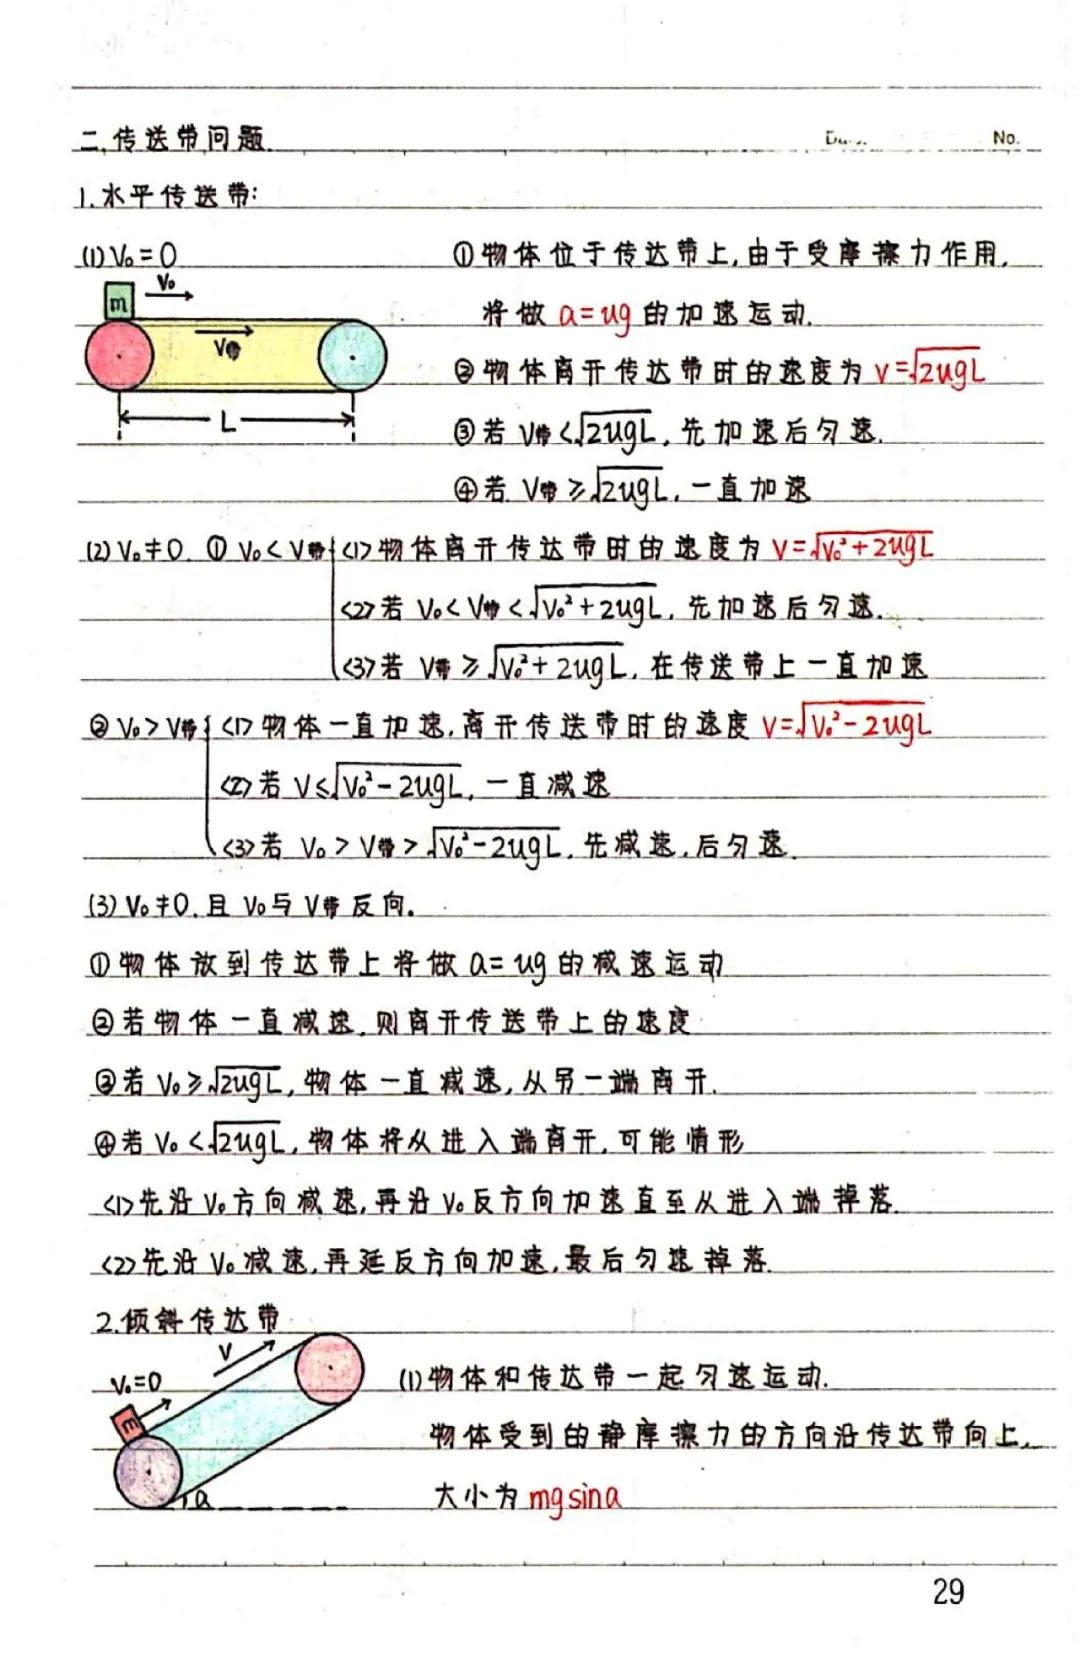 二,传送带问题.
No.
1.水平传送带:
(1)V₀=0
V₀
m
V带
L
①物体位于传达带上,由于受摩擦力作用,
将做a=ug的加速运动.
②物体离开传达带时的速度为v=√2ugL
③若V带<√2ugL,先加速后匀速.
④若V带≥√2ugL,一直加速
(2)V₀≠0. ①V₀<V带 <1>物体离开传达带时的速度为V=√V₀²+2ugL
<2>若V₀<V带<√V₀²+2ugL,先加速后匀速.
<3>若V带≥√V₀²+2ugL,在传送带上一直加速
②V₀>V带 <1>物体一直加速,离开传送带时的速度V=√V₀²-2ugL
<2>若V≤√V₀²-2ugL,一直减速
<3>若V₀>V带>√V₀²-2ugL,先减速,后匀速.
(3)V₀≠0.且V₀与V带反向.
①物体放到传达带上将做a=ug的减速运动
②若物体一直减速,则离开传送带上的速度
③若V₀≥√2ugL,物体一直减速,从另一端离开.
④若V₀<√2ugL,物体将从进入端离开,可能情形
<1>先沿V₀方向减速,再沿V₀反方向加速直至从进入端掉落.
<2>先沿V₀减速,再延反方向加速,最后匀速掉落.
2.倾斜传达带
V
V₀=0
m
a
(1)物体和传达带一起匀速运动.
物体受到的静摩擦力的方向沿传达带向上,
大小为mgsina
29